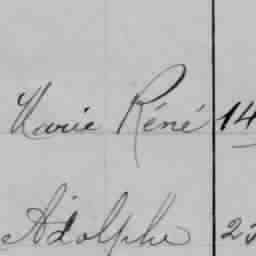 Marie Réné 14
Adolphe 23